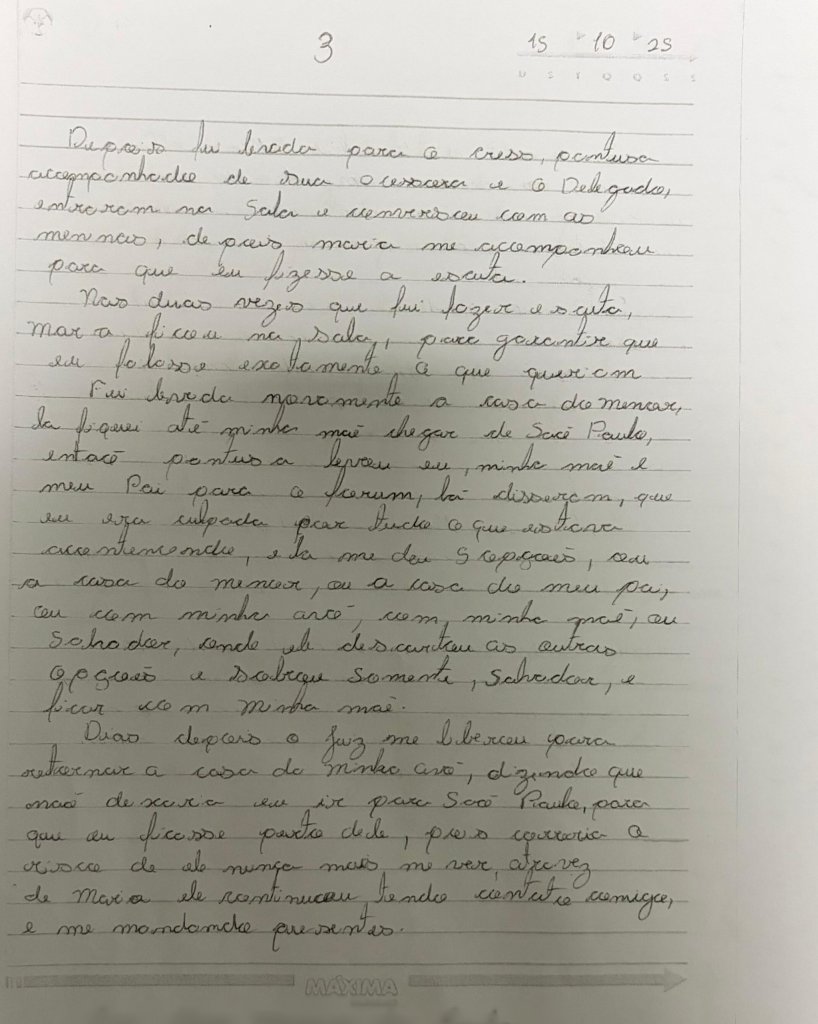 3
15 10 25
D S T Q Q S S
Depois fui levada para o creso, pantusa
acompanhada de sua acessora e o Delegado,
entraram na Sala e conversou com as
meninas, depois maria me acompanhou
para que eu fizesse a escuta.
Nas duas vezes que fui fazer escuta,
Maria ficou na sala, para garantir que
eu falasse exatamente o que queriam
Fui levada novamente a casa do menor,
la fiquei até minha maê chegar de Saõ Paulo,
entaõ pantusa levou eu, minha maê e
meu Pai para o forum, lá disseram, que
eu era culpada por tudo o que estava
acontencendo, ela me deu 5 opçoẽs, ou
a casa do menor, ou a casa do meu pai,
ou com minha avó, com minha maê, ou
Salvador, onde ele descartou as outras
opçoẽs e sobrou somente, Salvador, e
ficar com minha maê.
Dias depois o juz me liberou para
retornar a casa da minha avó, dizendo que
naõ deixaria eu ir para Saõ Paulo, para
que eu ficasse perto dele, pois correria o
risco de ele nunca mais me ver, atravez
de Maria ele continuou tendo contato comigo,
e me mandando presentes.
MÁXIMA